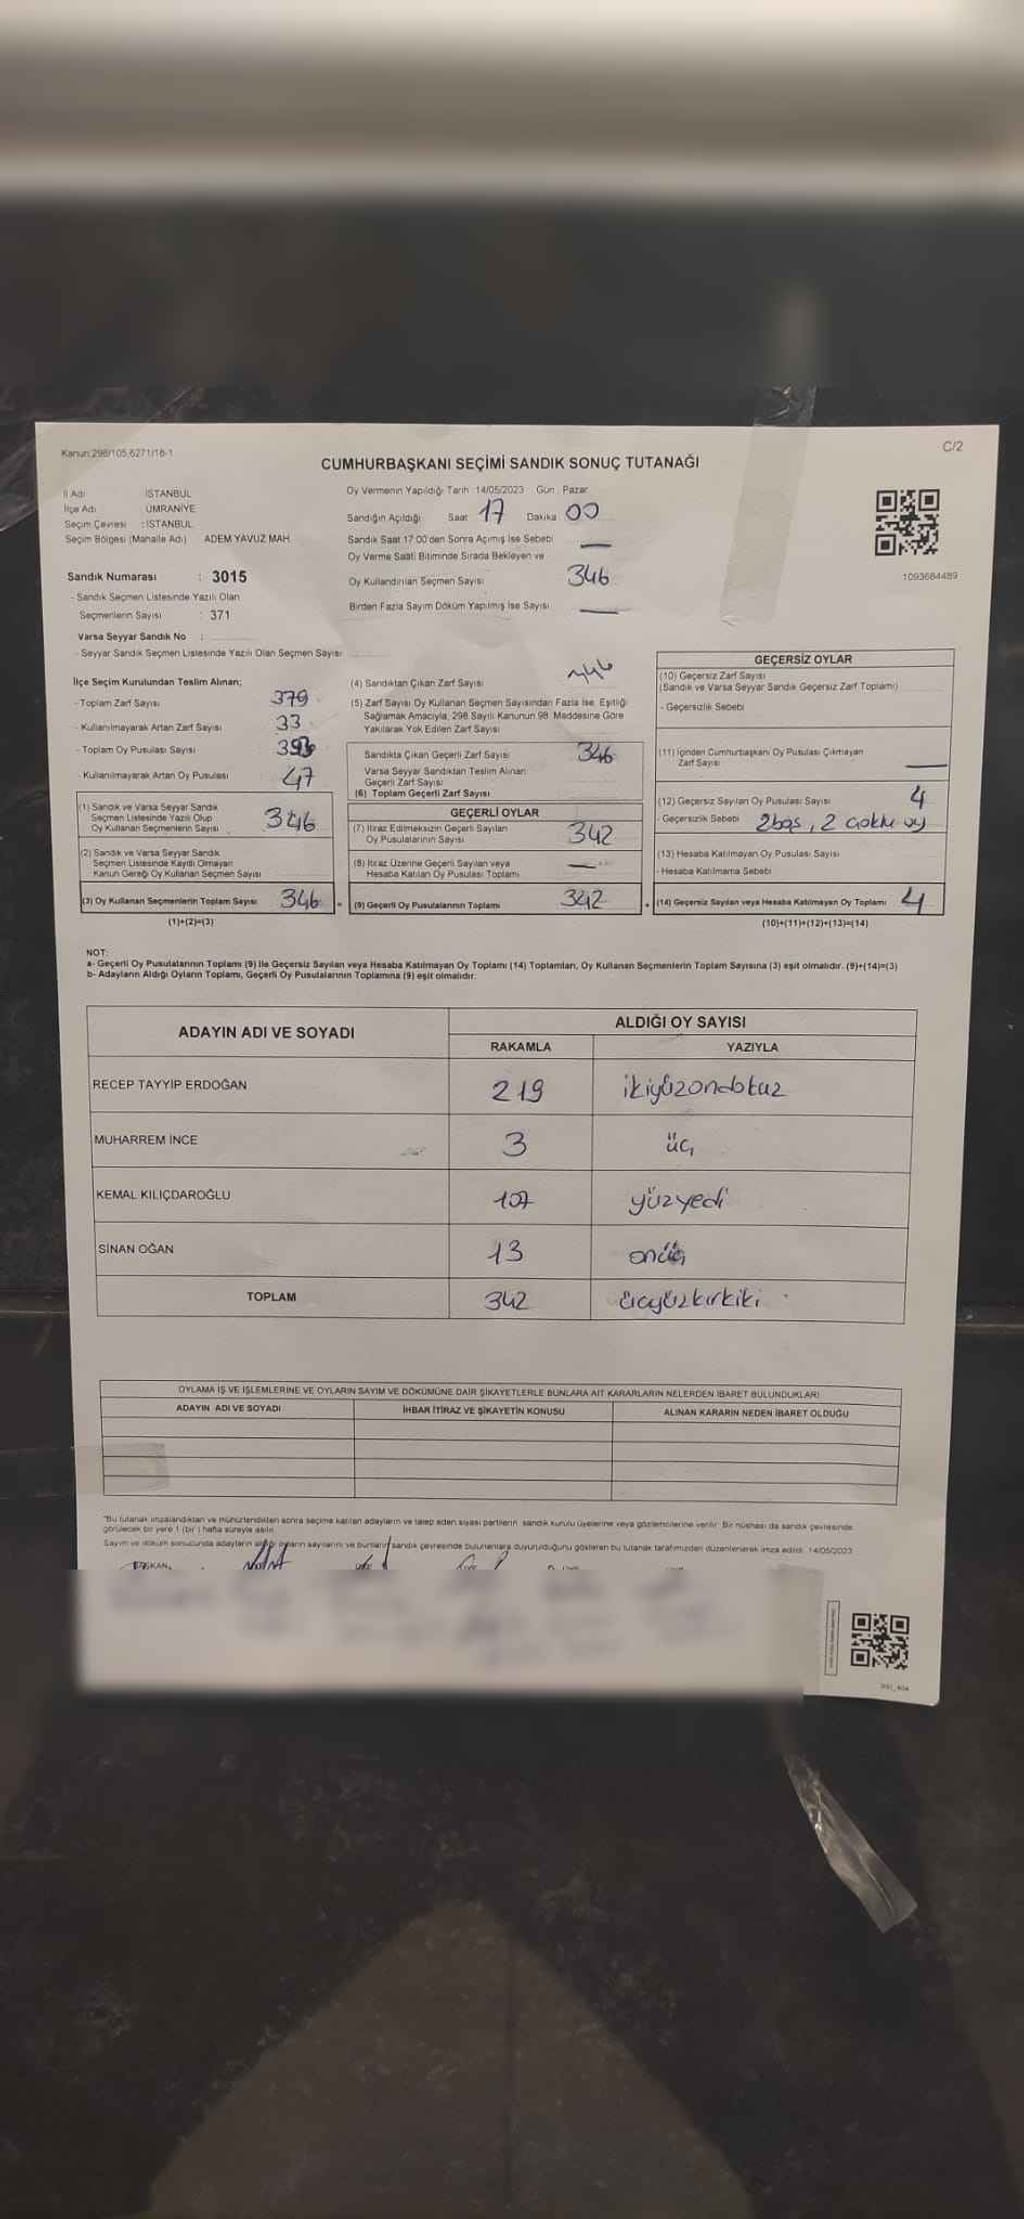 Kanun:298/105,6271/16-1
C/2
CUMHURBAŞKANI SEÇİMİ SANDIK SONUÇ TUTANAĞI
İl Adı İSTANBUL
İlçe Adı ÜMRANİYE
Seçim Çevresi : İSTANBUL
Seçim Bölgesi (Mahalle Adı) ADEM YAVUZ MAH.
Sandık Numarası : 3015
- Sandık Seçmen Listesinde Yazılı Olan
Seçmenlerin Sayısı : 371
Varsa Seyyar Sandık No :
- Seyyar Sandık Seçmen Listesinde Yazılı Olan Seçmen Sayısı
Oy Vermenin Yapıldığı Tarih :14/05/2023 Gün : Pazar
Sandığın Açıldığı Saat 17 Dakika 00
Sandık Saat 17:00'den Sonra Açımış İse Sebebi —
Oy Verme Saati Bitiminde Sırada Bekleyen ve
Oy Kullandırılan Seçmen Sayısı 346
Birden Fazla Sayım Döküm Yapılmış İse Sayısı —
1093684489
İlçe Seçim Kurulundan Teslim Alınan;
- Toplam Zarf Sayısı 379
- Kullanılmayarak Artan Zarf Sayısı 33
- Toplam Oy Pusulası Sayısı
- Kullanılmayarak Artan Oy Pusulası 47
(1) Sandık ve Varsa Seyyar Sandık
Seçmen Listesinde Yazılı Olup
Oy Kullanan Seçmenlerin Sayısı 346
(2) Sandık ve Varsa Seyyar Sandık
Seçmen Listesinde Kayıtlı Olmayan
Kanun Gereği Oy Kullanan Seçmen Sayısı
(3) Oy Kullanan Seçmenlerin Toplam Sayısı 346
(1)+(2)=(3)
(4) Sandıktan Çıkan Zarf Sayısı 346
(5) Zarf Sayısı Oy Kullanan Seçmen Sayısından Fazla İse, Eşitliği
Sağlamak Amacıyla, 298 Sayılı Kanunun 98. Maddesine Göre
Yakılarak Yok Edilen Zarf Sayısı
Sandıkta Çıkan Geçerli Zarf Sayısı 346
Varsa Seyyar Sandıktan Teslim Alınan
Geçerli Zarf Sayısı
(6) Toplam Geçerli Zarf Sayısı
GEÇERLİ OYLAR
(7) İtiraz Edilmeksizin Geçerli Sayılan
Oy Pusulalarının Sayısı 342
(8) İtiraz Üzerine Geçerli Sayılan veya
Hesaba Katılan Oy Pusulası Toplamı —
(9) Geçerli Oy Pusulalarının Toplamı 342
GEÇERSİZ OYLAR
(10) Geçersiz Zarf Sayısı
(Sandık ve Varsa Seyyar Sandık Geçersiz Zarf Toplamı)
- Geçersizlik Sebebi
(11) İçinden Cumhurbaşkanı Oy Pusulası Çıkmayan
Zarf Sayısı —
(12) Geçersiz Sayılan Oy Pusulası Sayısı 4
- Geçersizlik Sebebi 2 boş, 2 çoklu oy
(13) Hesaba Katılmayan Oy Pusulası Sayısı
- Hesaba Katılmama Sebebi
(14) Geçersiz Sayılan veya Hesaba Katılmayan Oy Toplamı 4
(10)+(11)+(12)+(13)=(14)
NOT:
a- Geçerli Oy Pusulalarının Toplamı (9) ile Geçersiz Sayılan veya Hesaba Katılmayan Oy Toplamı (14) Toplamları, Oy Kullanan Seçmenlerin Toplam Sayısına (3) eşit olmalıdır. (9)+(14)=(3)
b- Adayların Aldığı Oyların Toplamı, Geçerli Oy Pusulalarının Toplamına (9) eşit olmalıdır.
ADAYIN ADI VE SOYADI
ALDIĞI OY SAYISI
RAKAMLA YAZIYLA
RECEP TAYYİP ERDOĞAN 219 ikiyüzondokuz
MUHARREM İNCE 3 üç
KEMAL KILIÇDAROĞLU 107 yüzyedi
SİNAN OĞAN 13 onüç
TOPLAM 342 üçyüzkırkiki
OYLAMA İŞ VE İŞLEMLERİNE VE OYLARIN SAYIM VE DÖKÜMÜNE DAİR ŞİKAYETLERLE BUNLARA AİT KARARLARIN NELERDEN İBARET BULUNDUKLARI
ADAYIN ADI VE SOYADI İHBAR İTİRAZ VE ŞİKAYETİN KONUSU ALINAN KARARIN NEDEN İBARET OLDUĞU
"Bu tutanak imzalandıktan ve mühürlendikten sonra seçime katılan adayların ve talep eden siyasi partilerin sandık kurulu üyelerine veya gözlemcilerine verilir. Bir nüshası da sandık çevresinde
görülecek bir yere 1 (bir) hafta süreyle asılır.
Sayım ve döküm sonucunda adayların aldığı oyların sayılarını ve bunların sandık çevresinde bulunanlara duyurulduğunu gösteren bu tutanak tarafımızdan düzenlenerek imza edildi. 14/05/2023
BAŞKAN